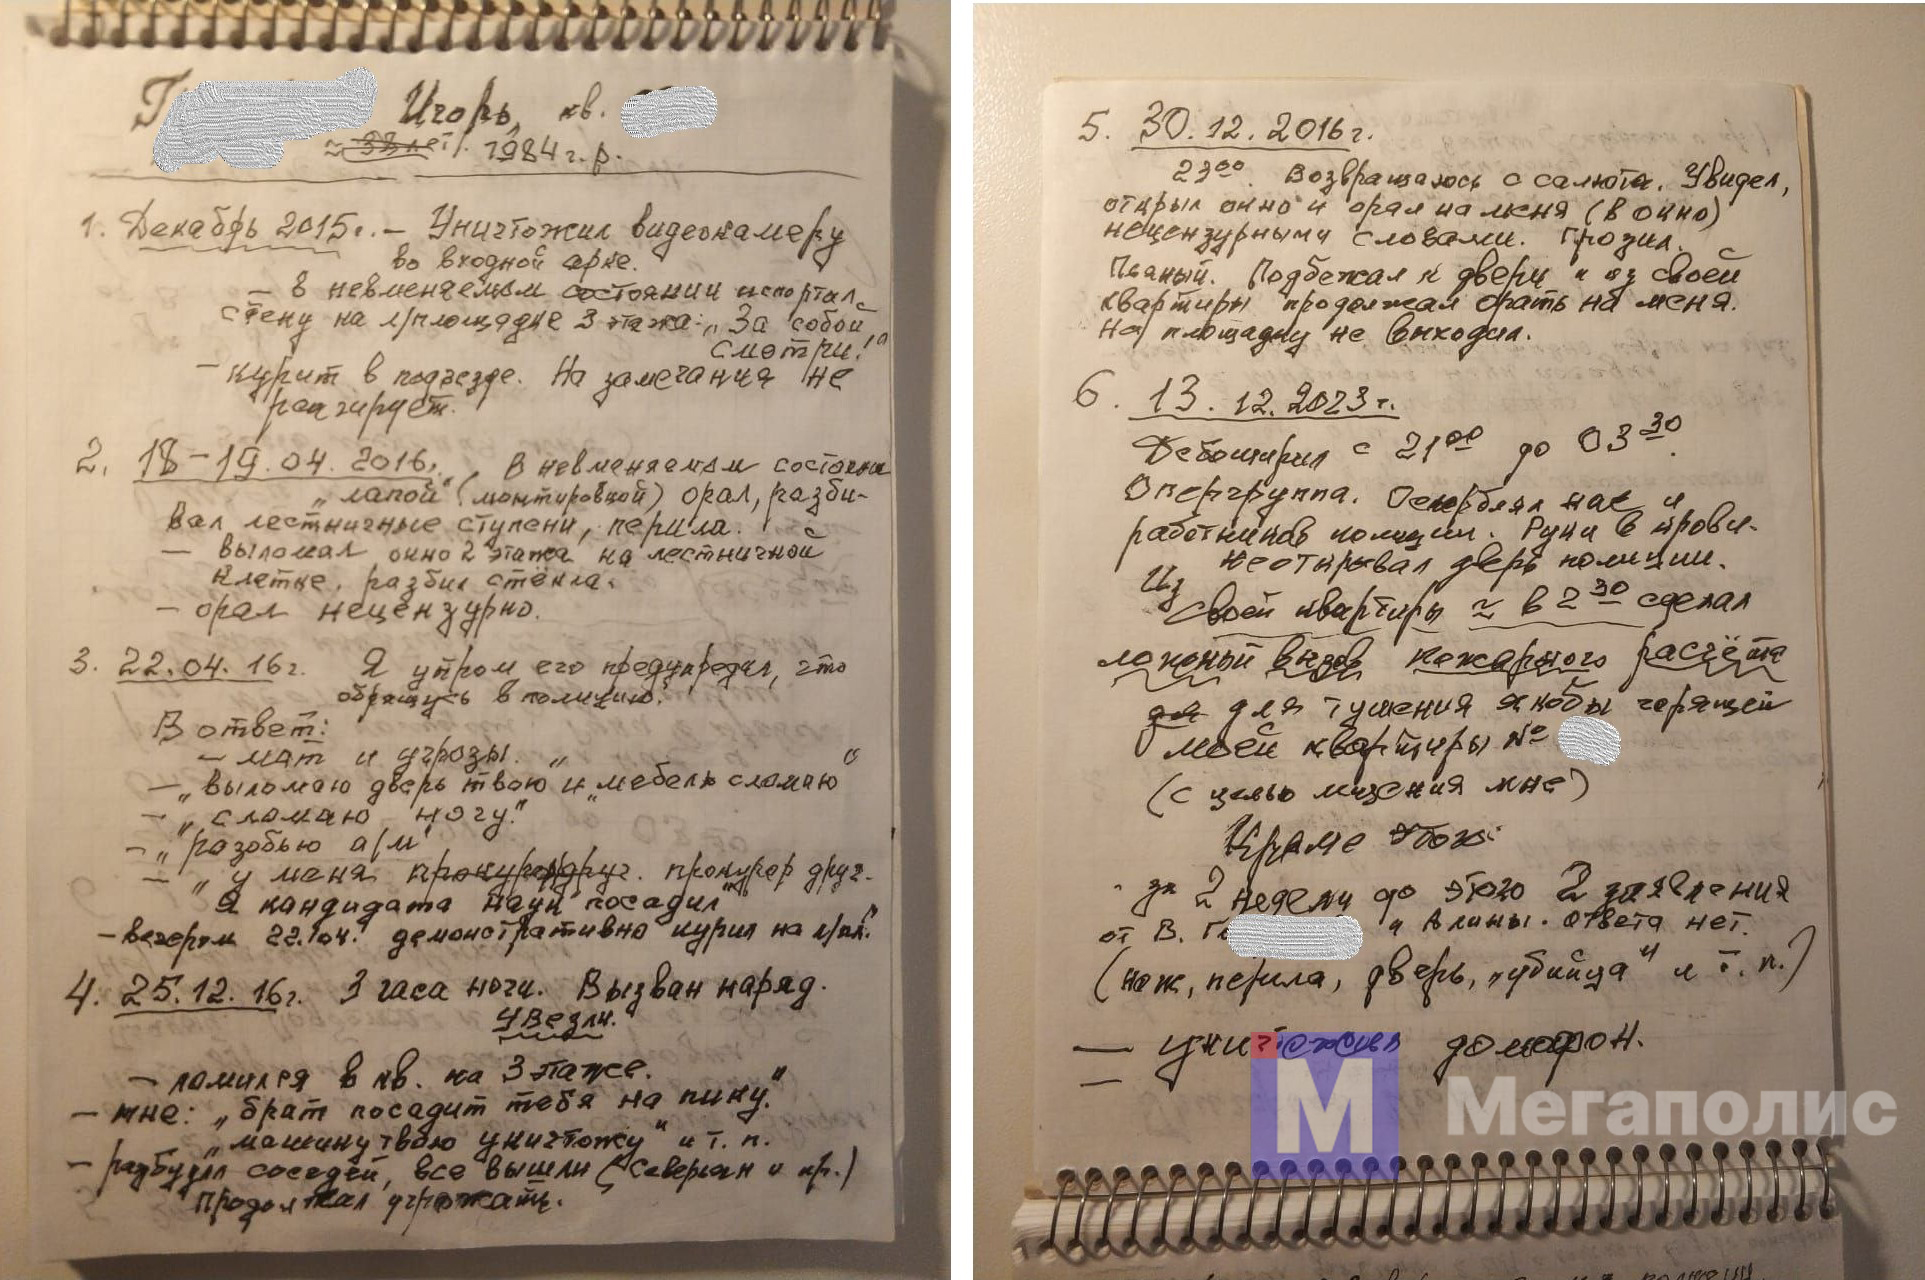 Г Игорь, кв.
≈ 38 лет 1984 г. р.
1. Декабрь 2015г. – Уничтожил видеокамеру
во входной арке.
– в невменяемом состоянии испортил
стену на л/площадке 3 этажа: „За собой
смотри!"
– курит в подъезде. На замечания не
реагирует.
2. 18–19.04.2016г. В невменяемом состоянии
„лапой" (монтировкой) орал, разби-
вал лестничные ступени, перила.
– выломал окно 2 этажа на лестничной
клетке, разбил стёкла.
– орал нецензурно.
3. 22.04.16г. Я утром его предупредил, что
обращусь в полицию.
В ответ:
– мат и угрозы.
– „выломаю дверь твою и „мебель сломаю"
– „сломаю ногу."
– „разобью а/м"
– „у меня прокурор друг. прокурор друг.
Я кандидата наук посадил"
– вечером 22.04. демонстративно курил на л/пл.
4. 25.12.16г. 3 часа ночи. Вызван наряд.
Увезли.
– ломился в кв. на 3 этаже.
– мне: „брат посадит тебя на пику."
„машину твою уничтожу" и т. п.
– разбудил соседей, все вышли (Саверкин и пр.)
Продолжал угрожать.
5. 30.12.2016г.
23⁰⁰. Возвращаюсь с салюта. Увидел,
открыл окно и орал на меня (в окно)
нецензурными словами. Грозил.
Пьяный. Подбежал к двери и из своей
квартиры продолжал орать на меня.
На площадку не выходил.
6. 13.12.2023г.
Дебоширил с 21⁰⁰ до 03³⁰.
Опергруппа. Оскорблял нас и
работников полиции. Руки в крови.
Не открывал дверь полиции.
Из своей квартиры ≈ в 2³⁰ сделал
ложный вызов пожарного расчёта
для тушения якобы горящей
моей квартиры №
(с целью мщения мне)
Кроме того:
за 2 недели до этого 2 заявления
от В. Гл и Алины. Ответа нет.
(нож, перила, дверь, „убийца" и т. п.)
– уничтожил домофон.
–
М Мегаполис